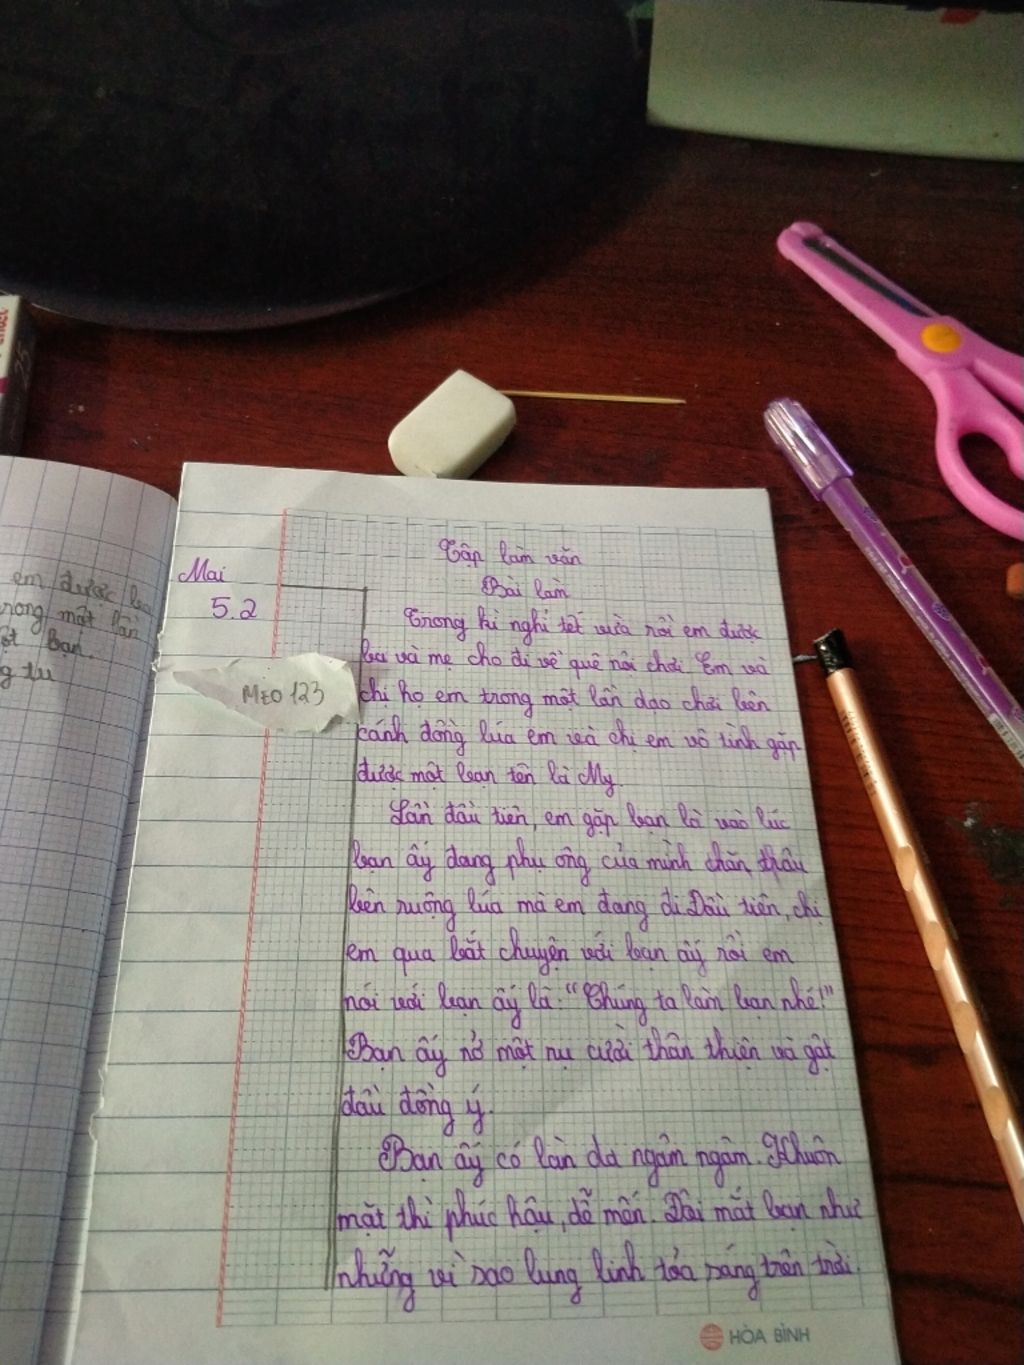 em được
trong một lần
bạn.
Tập làm văn
Mai
Bài làm
5.2
Trong kì nghỉ tết vừa rồi em được
ba và mẹ cho đi về quê nội chơi. Em và
MEO 123
chị họ em trong một lần dạo chơi bên
cánh đồng lúa em và chị em vô tình gặp
được một bạn tên là My.
Lần đầu tiên, em gặp bạn là vào lúc
bạn ấy đang phụ ông của mình chăn trâu
bên ruộng lúa mà em đang đi. Đầu tiên, chị
em qua bắt chuyện với bạn ấy rồi em
nói với bạn ấy là: "Chúng ta làm bạn nhé!"
Bạn ấy nở một nụ cười thân thiện và gật
đầu đồng ý.
Bạn ấy có làn da ngâm ngâm. Khuôn
mặt thì phúc hậu, dễ mến. Đôi mắt bạn như
những vì sao lung linh tỏa sáng trên trời.
HÒA BÌNH